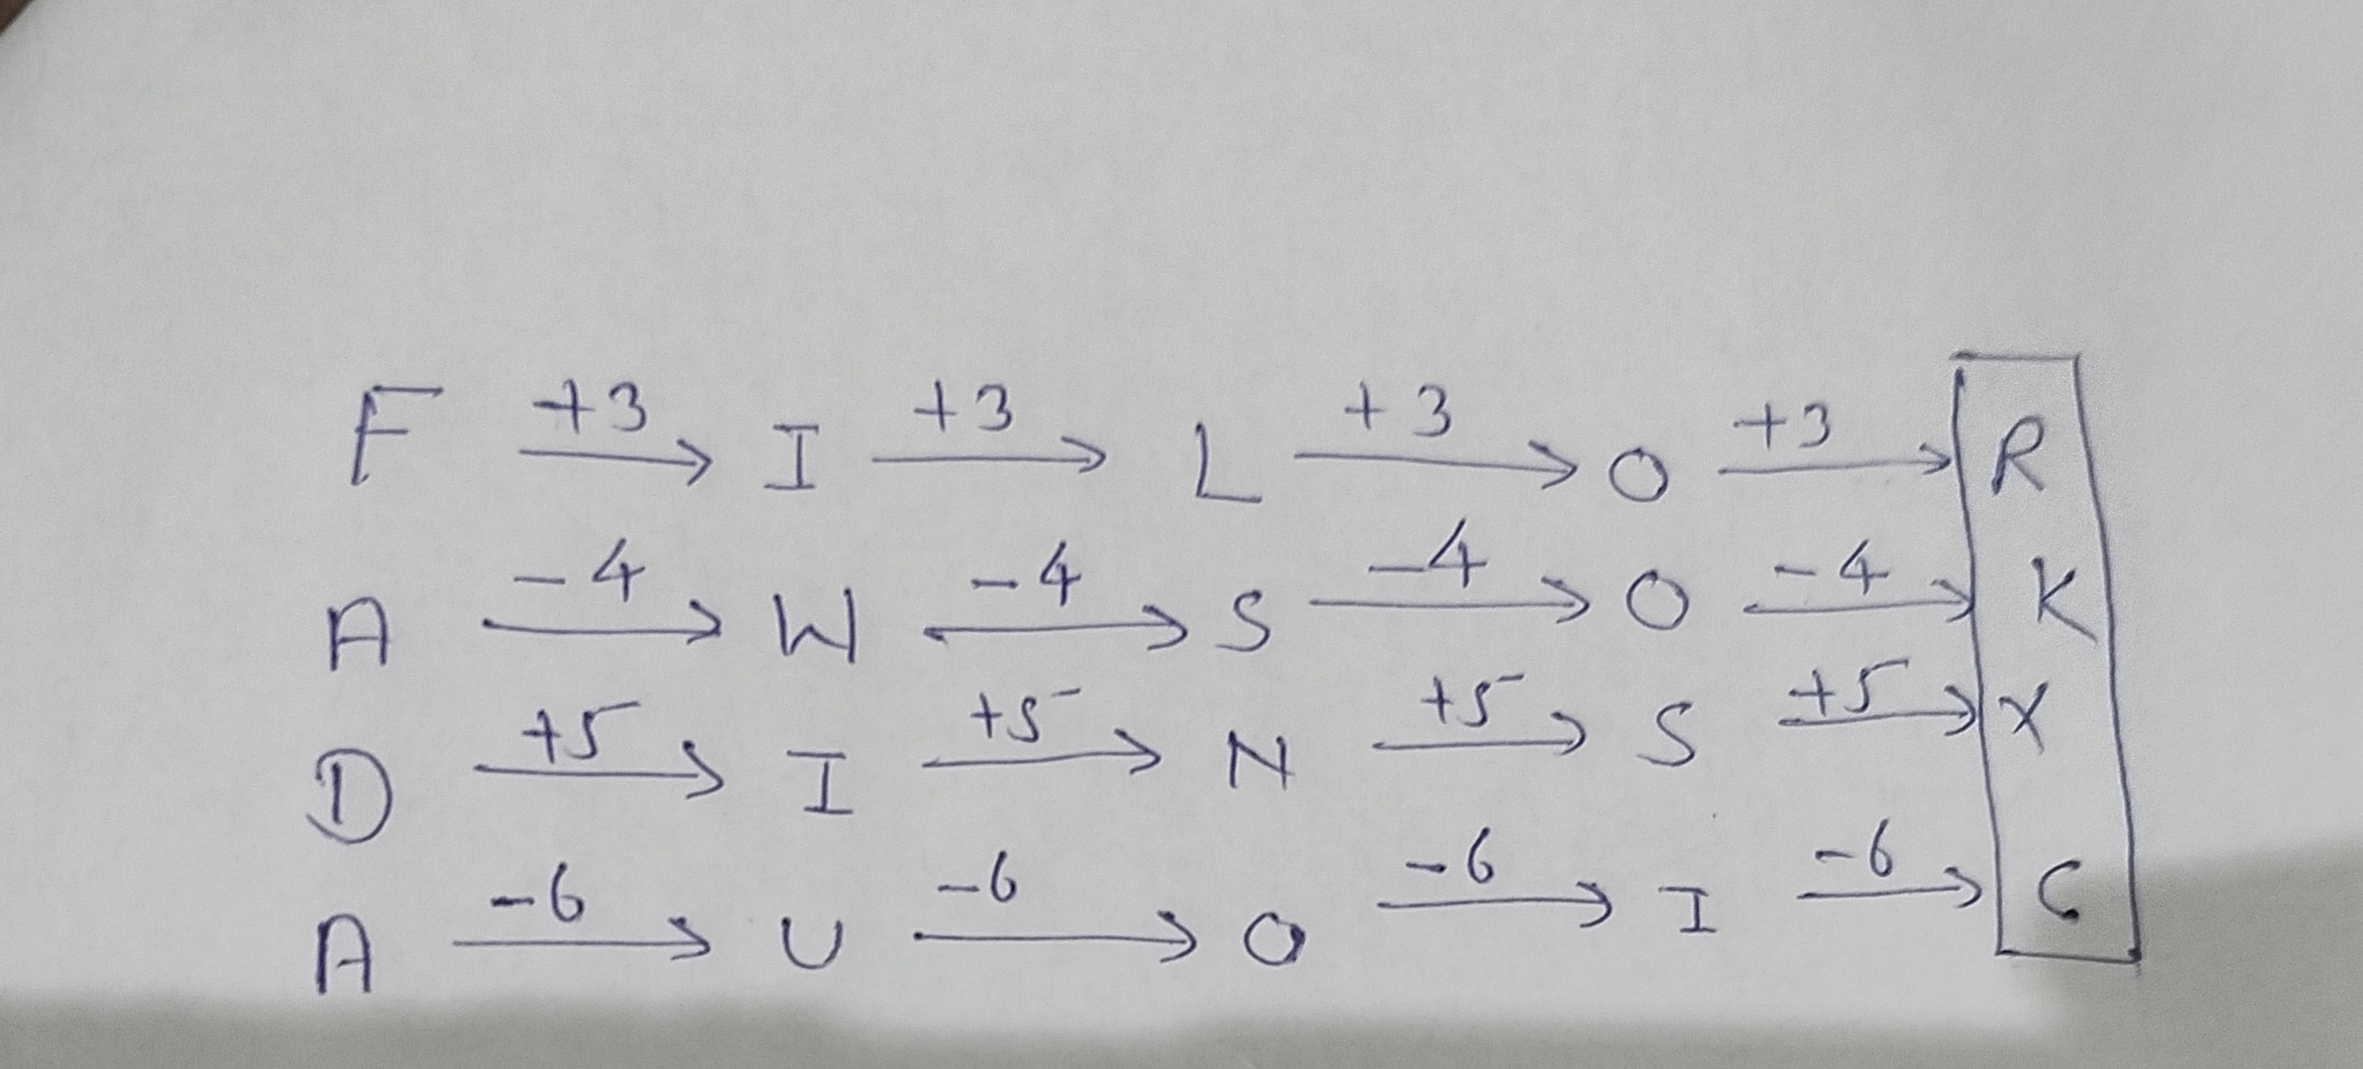 F +3 → I +3 → L +3 → O +3 → R
A -4 → W -4 → S -4 → O -4 → K
D +5 → I +5 → N +5 → S +5 → X
A -6 → U -6 → O -6 → I -6 → C